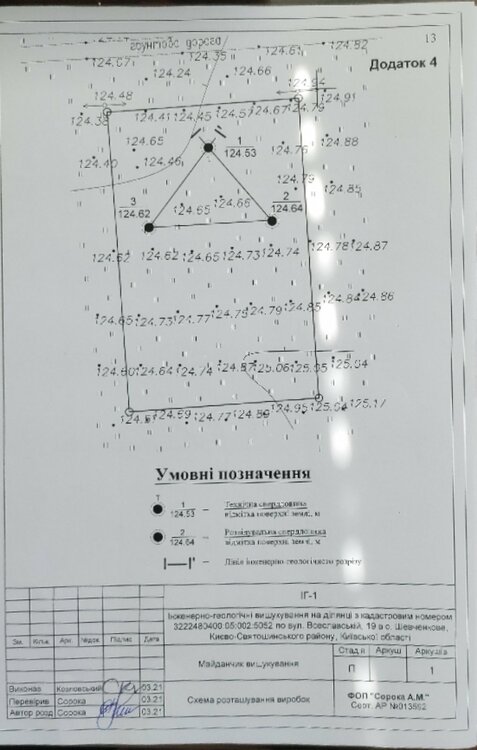 13
Додаток 4
грунтова дорога
124.35
124.61
124.82
124.07
124.24
124.66
124.94
124.91
124.48
124.38
124.41
124.45
124.57
124.67
124.79
124.65
1
124.53
124.76
124.88
124.40
124.46
124.79
124.85
3
124.62
124.65
124.66
2
124.64
124.62
124.62
124.65
124.73
124.74
124.78
124.87
124.65
124.73
124.77
124.78
124.79
124.85
124.84
124.86
124.60
124.64
124.74
124.87
125.06
125.05
125.04
124.69
124.77
124.86
124.95
125.04
125.17
Умовні позначення
Т
1
124.53
– Технічна свердловина
відмітка поверхні землі, м
2
124.64
– Розвідувальна свердловина
відмітка поверхні землі, м
I—I' – Лінія інженерно геологічного розрізу
ІГ-1
Інженерно-геологічні вишукування на ділянці з кадастровим номером
3222480400:05:002:5052 по вул. Всеславській, 19 в с. Шевченкове,
Києво-Святошинського району, Київської області
Зм. Кільк. Арк. №док. Підпис Дата
Майданчик вишукування
Стадія Аркуш Аркушів
П 1
Виконав Козловський 03.21
Перевірив Сорока 03.21
Автор розд Сорока 03.21
Схема розташування виробок
ФОП "Сорока А.М."
Серт. АР №013592